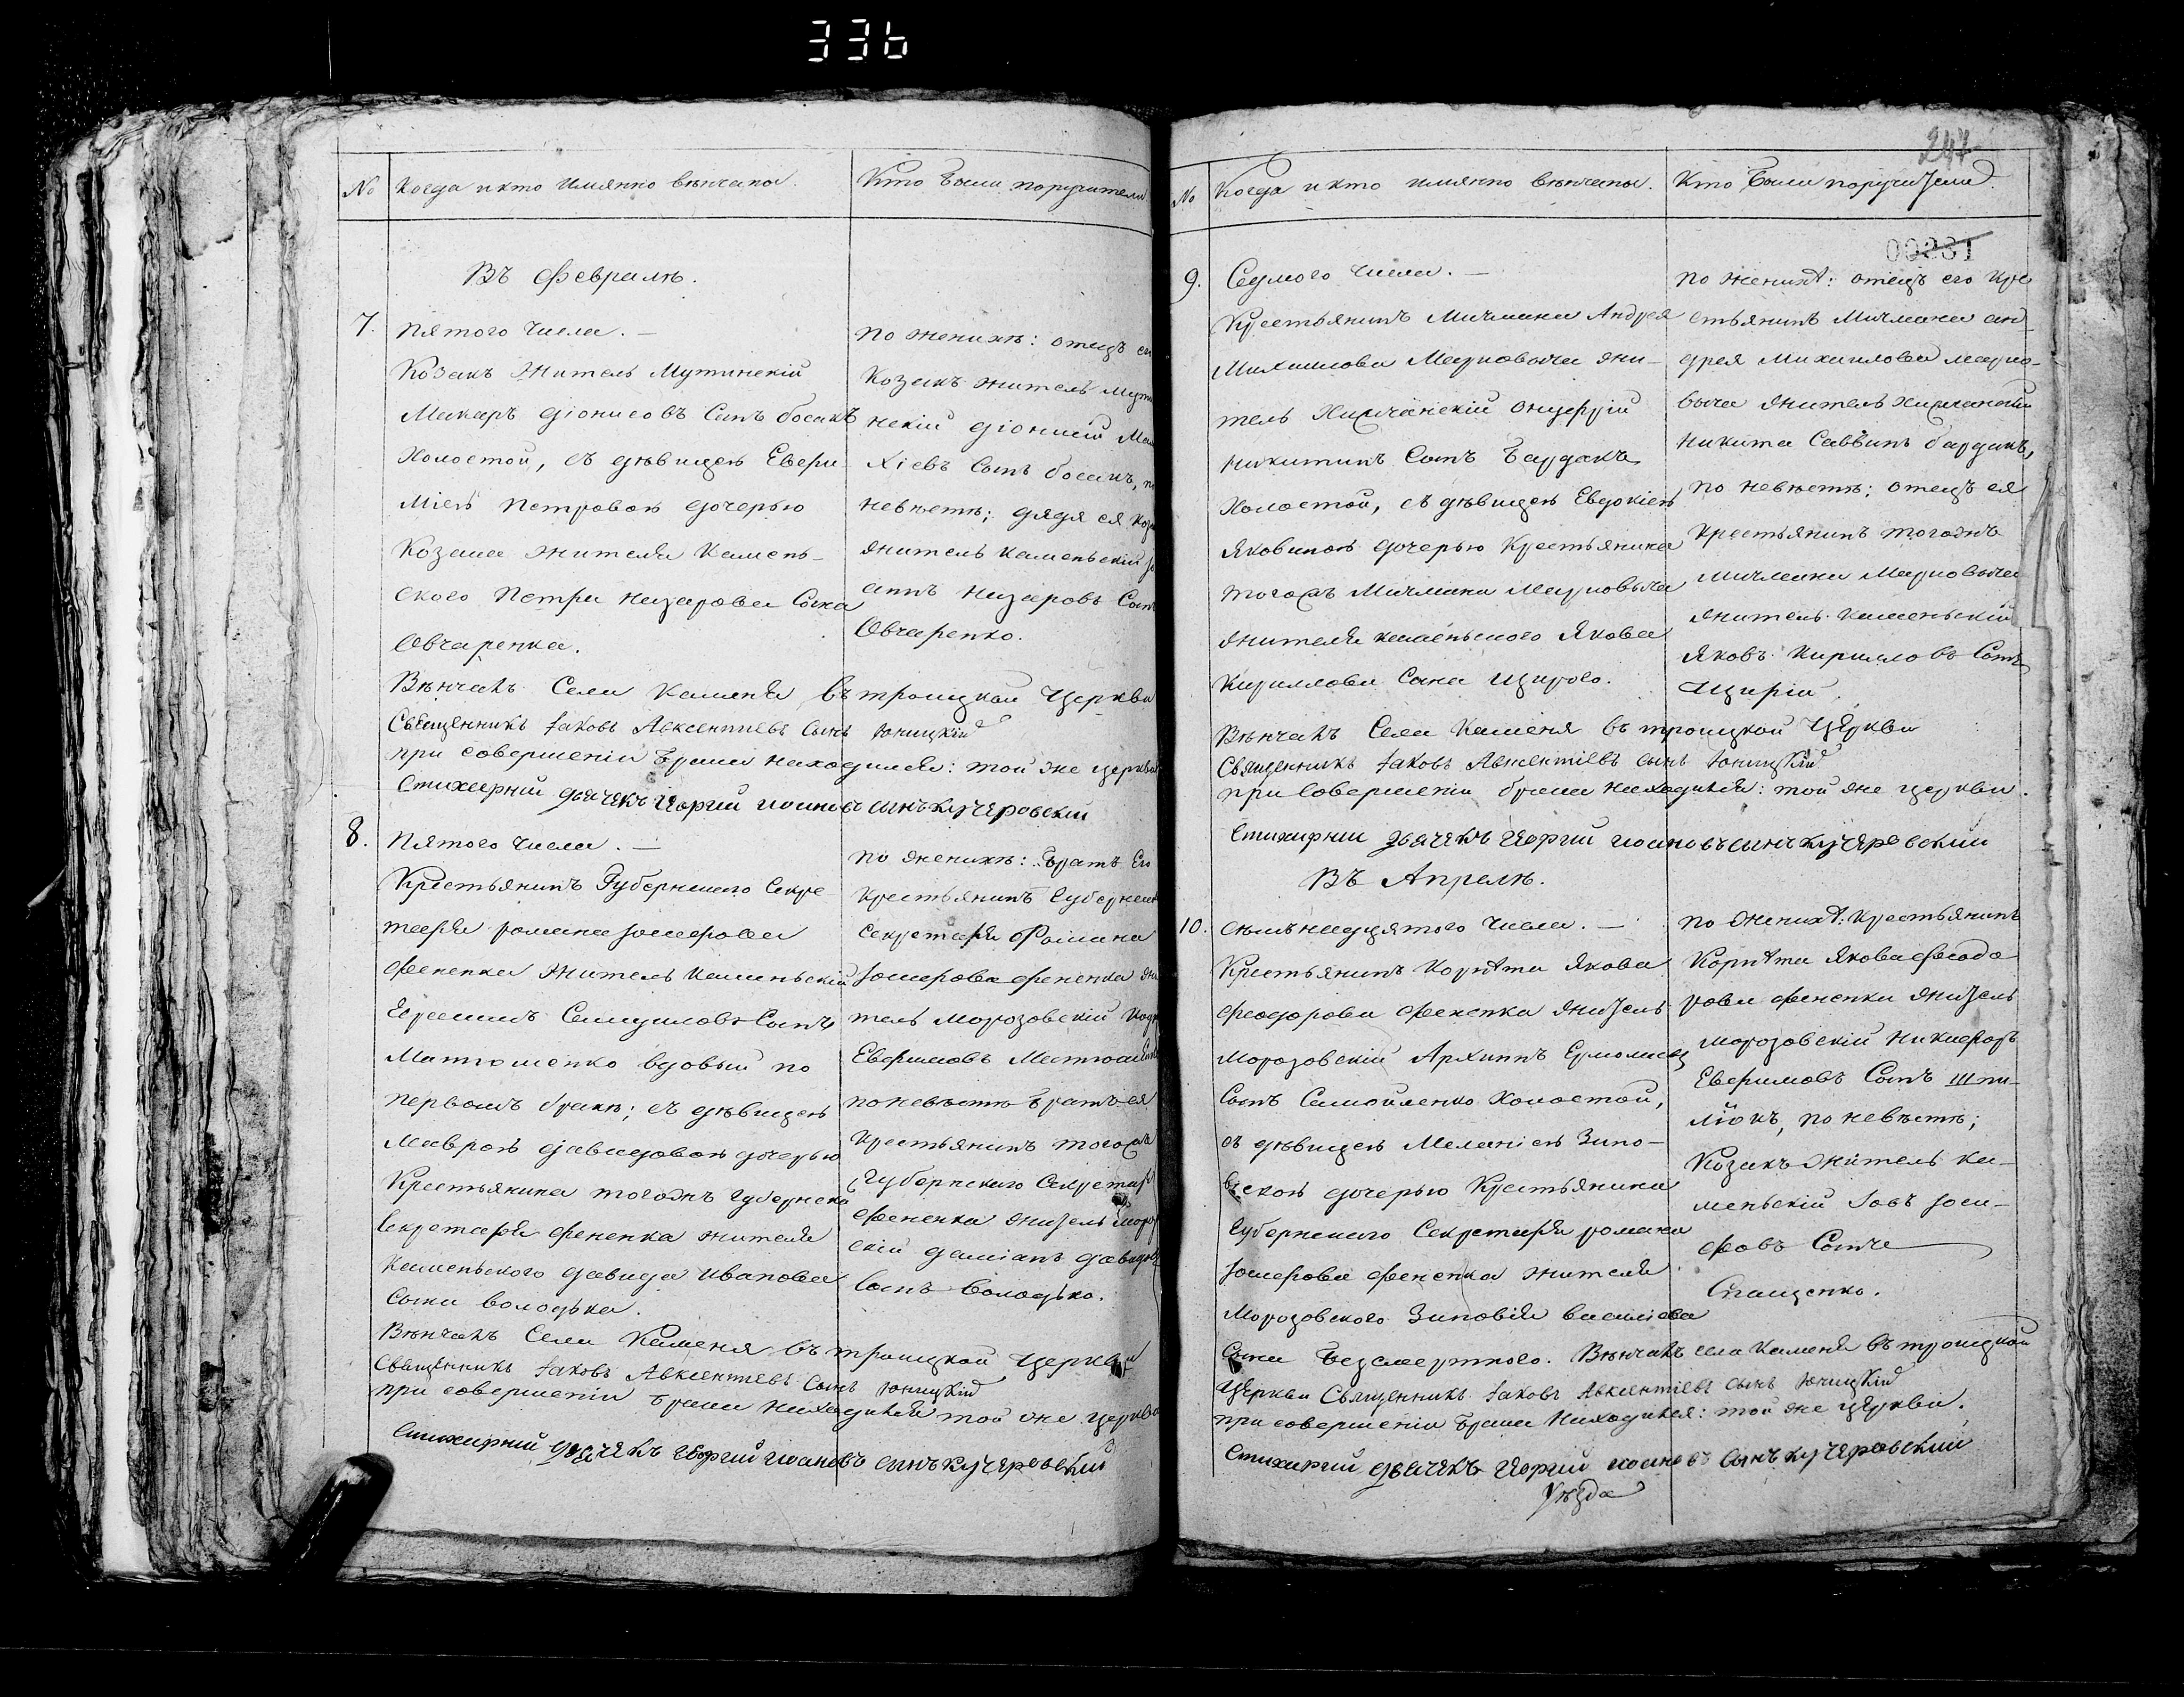 336
№ Когда и кто имянно вѣнчаны. Кто были поручители
Въ Февралѣ.
7. Пятого числа. —
Козакъ житель Мутинскій
Макаръ Діонисовъ Сынъ босакъ
Холостой, съ дѣвицею Евфи-
міею Петровою дочерью
Козака жителя Камень-
ского Петра Назарова Сына
Овчаренка.
по женихѣ: отецъ ег
Козакъ житель Мути
нскій Діонисій Ма
хіевъ Сынъ босакъ, п
невѣстѣ; дядя ея коза
житель каменьскій
Назаровъ Сынъ
Овчаренко.
Вѣнчалъ Села Каменя въ троицкой Церкви
Священникъ Іаковъ Авксентиевъ Сынъ Юницкій
при совершеніи брака находился: той же церкви
Стихарній дьячекъ Георгий иоановъ сынъ кучеровский
8. Пятого числа. —
Крестьянинъ Губернского Секре-
таря романа Іосифова
Фененка житель Каменьскій
Герасимъ Самуиловъ Сынъ
Матюшенко вдовый по
первомъ бракѣ; съ дѣвицею
Маврою Давидовою дочерью
Крестьянина тогожъ Губернско
Секретаря Фененка жителя
Каменьского Давида Иванова
сына володька.
по женихѣ: братъ Его
крестьянинъ Губернск
Секретаря Романа
Іосифова Фененка жи
тель Морозовскій
Евфимовъ
по невѣстѣ братъ ея
крестьянинъ тогожъ
Губернского Секретар
Фененка житель Мороз
скій Даміанъ Давидов
Сынъ Володько.
Вѣнчалъ Села Каменя въ троицкой Церкви
Священникъ Іаковъ Авксентиевъ Сынъ Юницкій
при совершеніи брака находился той же церкви
Стихарний дьячекъ Георгий иоановъ сынъ кучеровский
247
№ Когда и кто имянно вѣнчаны. Кто были поручители.
00231
9. Седмого числа. —
Крестьянинъ Мичмана Андрея
Михаилова Марковича жи-
тель Хижчанскій Онуфрій
Никитинъ Сынъ бардакъ
Холостой, съ дѣвицею Евдокіею
Яковиною дочерью Крестьянина
тогожъ Мичмана Марковича
жителя каменьского Якова
Кириллова Сына Щирого.
по женихѣ: отецъ его кре
стьянинъ Мичмана ан-
дрея Михаилова марко-
вича житель
Никита Саввинъ бардакъ,
по невѣстѣ; отецъ ея
крестьянинъ тогожъ
мичмана Марковича
житель Каменьскій
Яковъ Кириловъ Сынъ
Щирій.
Вѣнчалъ Села Каменя въ троицкой Церкви
Священникъ Іаковъ Авксентіевъ сынъ Юницкій
при совершеніи брака находился: той же церкви.
Стихирни дьячекъ Георгий иоановъ сынъ кучеровский
Въ Апрелѣ.
10. Семьнадцятого числа. —
Крестьянинъ Корнѣта Якова
Феодорова Фененка житель
Морозовскій Архиппъ Ермолаев
Сынъ Самойленко Холостой,
съ дѣвицею Меланіею Зино-
вскою дочерью Крестьянина
Губернского Секретаря романа
Іосифова Фененка жителя
Морозовского Зиновія василіева
Сына безсмертного. Вѣнчалъ села Каменя въ троицкой
по женихѣ: крестьянинъ
Корнѣта Якова Феодо
рова Фененки житель
морозовскій Никифоръ
Евфимовъ Сынъ Шпи-
люкъ, по невѣстѣ;
Козакъ житель ка-
меньскій Іовъ Іоси-
фовъ Сынъ
Спащенко.
Церкви Священникъ Іаковъ Авксентіевъ сынъ Юницкій
при совершеніи брака находился: той же церкви.
Стихарний дьячекъ Георгий иоановъ сынъ кучеровский
Уѣзда